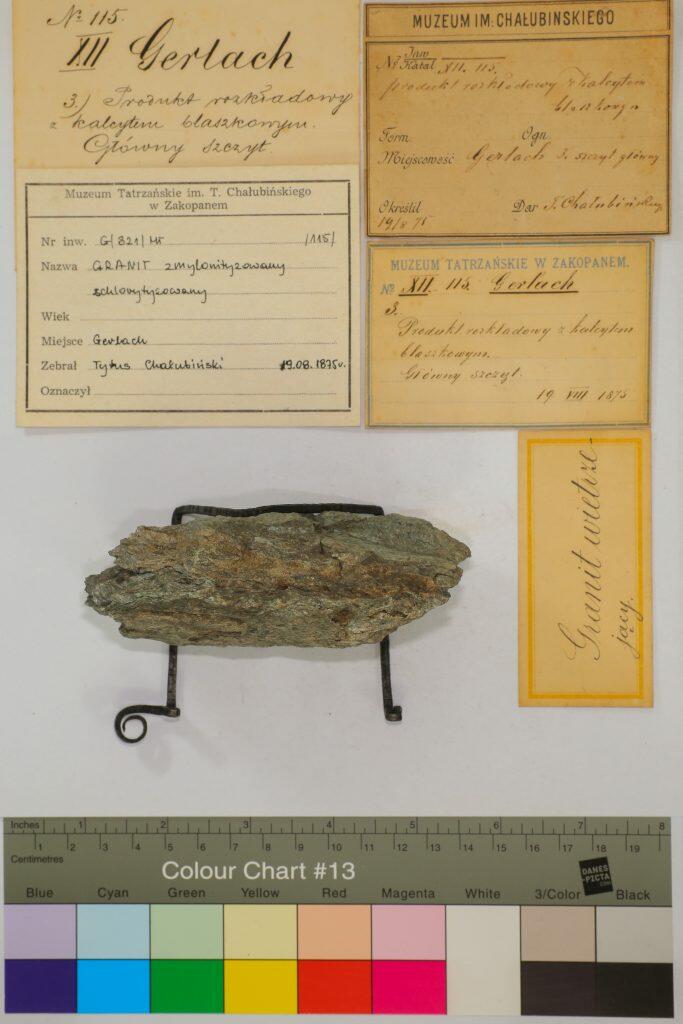 № 115.
XII Gerlach
3.) Produkt rozkładowy
z kalcytem blaszkowym.
Główny szczyt.
MUZEUM IM: CHAŁUBINSKIEGO
№ Inw
Katal XII. 115.
produkt rozkładowy z kalcytem
blaszkowym
Form. Ogn.
Miejscowość Gerlach 3. szczyt główny
Określił Dar T. Chałubińskiego
19/8 75
Muzeum Tatrzańskie im. T. Chałubińskiego
w Zakopanem
Nr inw. G/821/MT /115/
Nazwa GRANIT zmylonityzowany
schlorytyzowany
Wiek
Miejsce Gerlach
Zebrał Tytus Chałubiński 19.08.1875r.
Oznaczył
MUZEUM TATRZAŃSKIE W ZAKOPANEM.
№ XII. 115. Gerlach
3.
Produkt rozkładowy z kalcytem
blaszkowym.
Główny szczyt.
19 VIII 1875
Granit wietrze-
jący.
Inches 1 2 3 4 5 6 7 8
Centimetres 1 2 3 4 5 6 7 8 9 10 11 12 13 14 15 16 17 18 19
Colour Chart #13
DANES
-PICTA
.COM
Blue Cyan Green Yellow Red Magenta White 3/Color Black